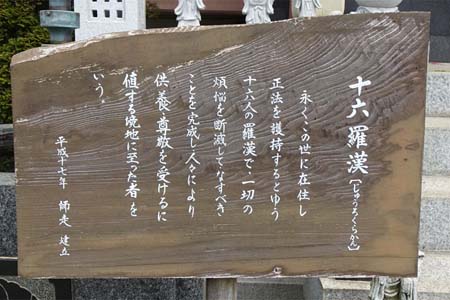 十六羅漢〔じゅうろくらかん〕
永くこの世に在住し
正法を護持するとゆう
十六人の羅漢で、一切の
煩悩を断滅してなすべき
ことを完成し人々により
供養・尊敬を受けるに
値する境地に至った者を
いう。
平成十七年 師走 建立